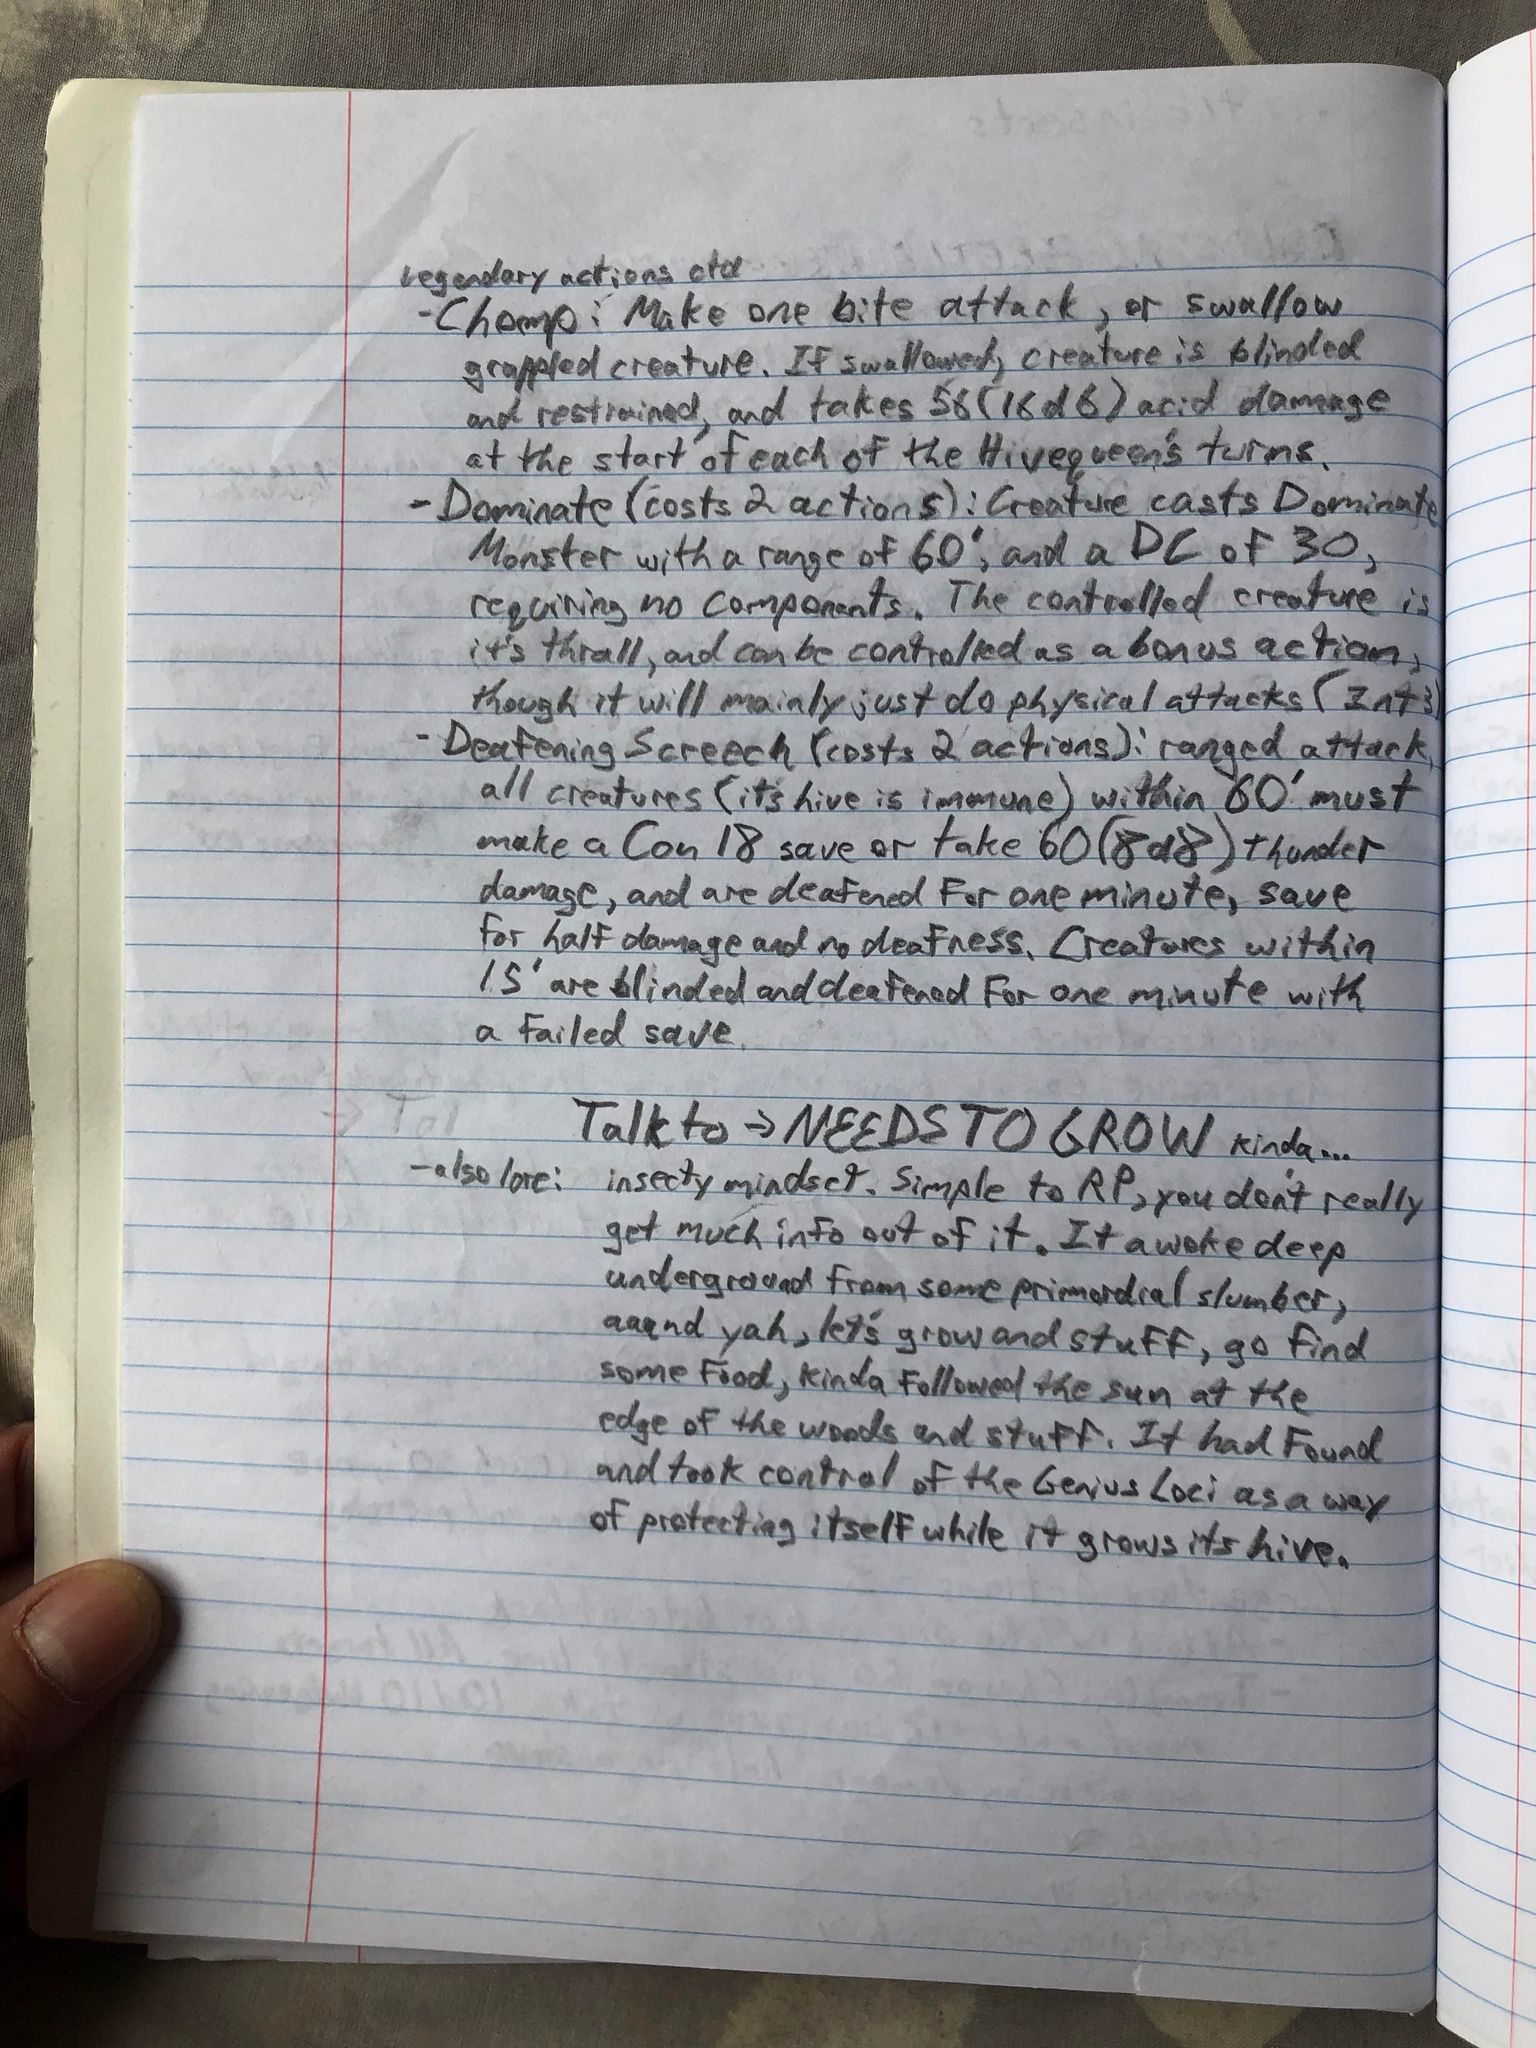 Legendary actions ctd
- Chomp: Make one bite attack, or swallow
grappled creature. If swallowed, creature is blinded
and restrained, and takes 56 (16d6) acid damage
at the start of each of the Hivequeen's turns.
- Dominate (costs 2 actions): Creature casts Dominate
Monster with a range of 60', and a DC of 30,
requiring no components. The controlled creature is
it's thrall, and can be controlled as a bonus action,
though it will mainly just do physical attacks (Int 3)
- Deafening Screech (costs 2 actions): ranged attack,
all creatures (it's hive is immune) within 60' must
make a Con 18 save or take 60 (8d8) thunder
damage, and are deafened for one minute, save
for half damage and no deafness. Creatures within
15' are blinded and deafened for one minute with
a failed save.
Talk to → NEEDS TO GROW kinda...
- also lore: insecty mindset. Simple to RP, you don't really
get much info out of it. It awoke deep
underground from some primordial slumber,
aaand yah, let's grow and stuff, go find
some food, kinda followed the sun at the
edge of the woods and stuff. It had found
and took control of the Genius Loci as a way
of protecting itself while it grows its hive.